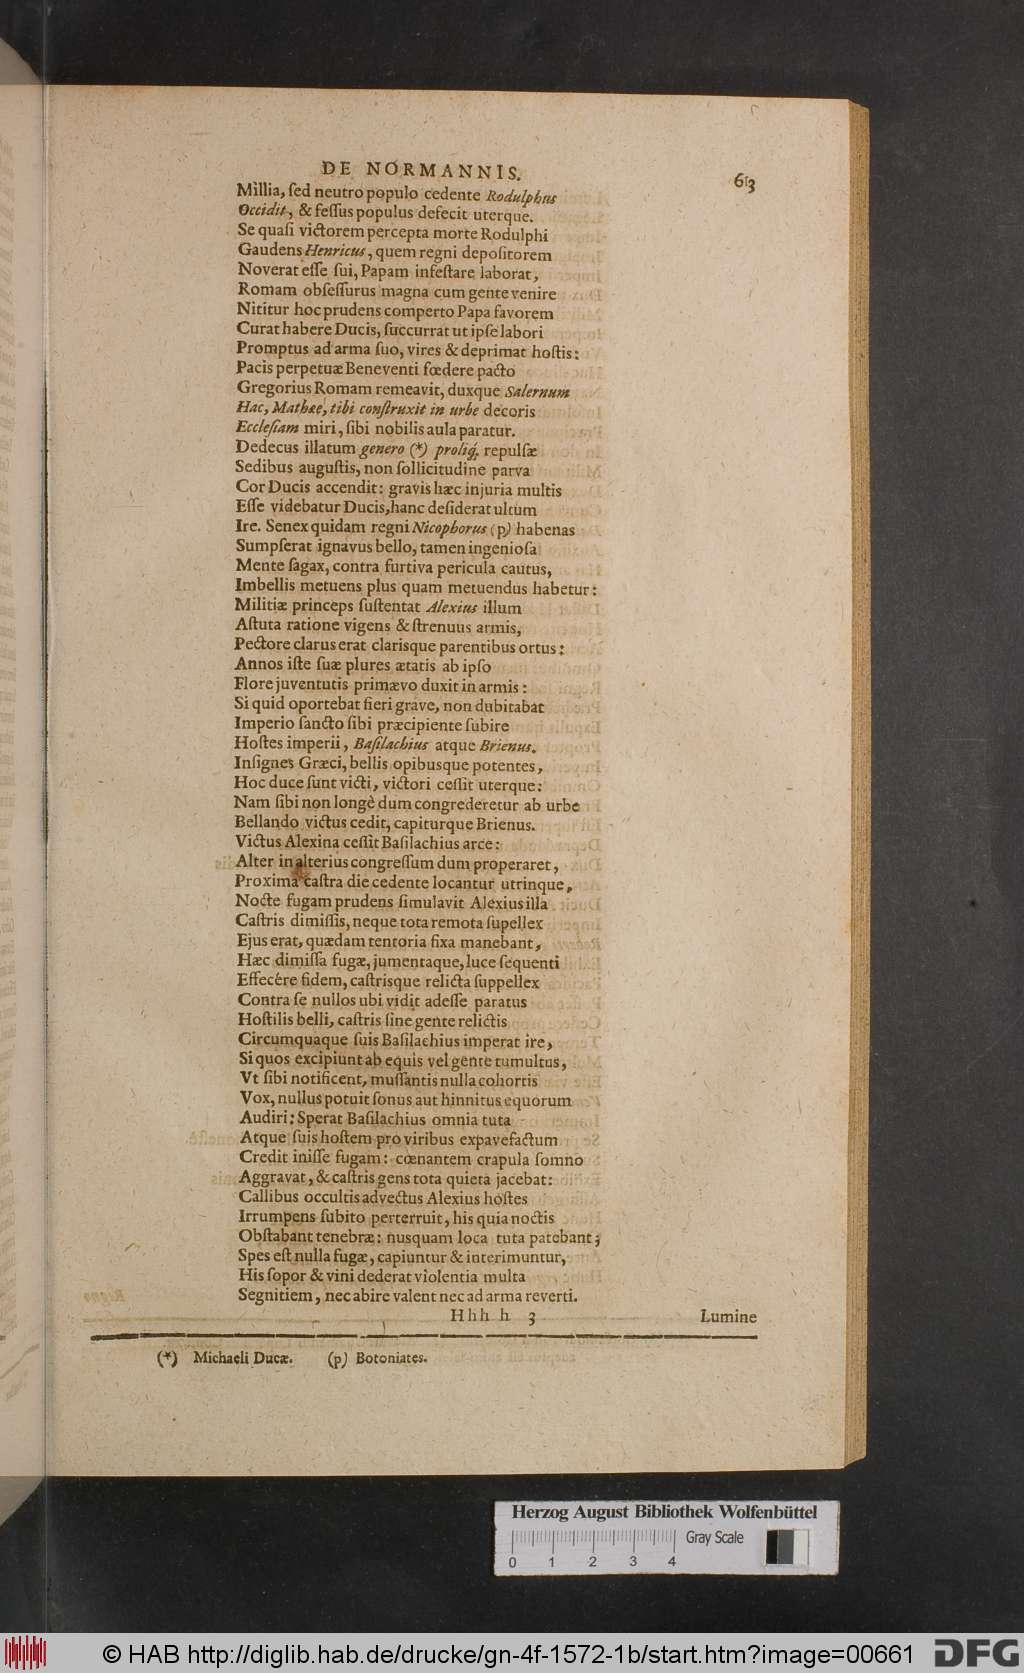 DE NORMANNIS. 613
Millia, ſed neutro populo cedente Rodulphus
Occidit, & feſſus populus defecit uterque.
Se quaſi victorem percepta morte Rodulphi
Gaudens Henricus, quem regni depoſitorem
Noverat eſſe ſui, Papam infeſtare laborat,
Romam obſeſſurus magna cum gente venire
Nititur hoc prudens comperto Papa favorem
Curat habere Ducis, ſuccurrat ut ipſe labori
Promptus ad arma ſuo, vires & deprimat hoſtis:
Pacis perpetuæ Beneventi fœdere pacto
Gregorius Romam remeavit, duxque Salernum
Hac, Mathæe, tibi conſtruxit in urbe decoris
Eccleſiam miri, ſibi nobilis aula paratur.
Dedecus illatum genero (*) proliq́; repulſæ
Sedibus auguſtis, non ſollicitudine parva
Cor Ducis accendit: gravis hæc injuria multis
Eſſe videbatur Ducis, hanc deſiderat ultum
Ire. Senex quidam regni Nicophorus (p) habenas
Sumpſerat ignavus bello, tamen ingenioſa
Mente ſagax, contra furtiva pericula cautus,
Imbellis metuens plus quam metuendus habetur:
Militiæ princeps ſuſtentat Alexius illum
Aſtuta ratione vigens & ſtrenuus armis,
Pectore clarus erat clarisque parentibus ortus:
Annos iſte ſuæ plures ætatis ab ipſo
Flore juventutis primævo duxit in armis:
Si quid oportebat fieri grave, non dubitabat
Imperio ſancto ſibi præcipiente ſubire
Hoſtes imperii, Baſilachius atque Brienus.
Inſignes Græci, bellis opibusque potentes,
Hoc duce ſunt victi, victori ceſſit uterque:
Nam ſibi non longè dum congrederetur ab urbe
Bellando victus cedit, capiturque Brienus.
Victus Alexina ceſſit Baſilachius arce:
Alter in alterius congreſſum dum properaret,
Proxima caſtra die cedente locantur utrinque,
Nocte fugam prudens ſimulavit Alexius illa
Caſtris dimiſſis, neque tota remota ſupellex
Ejus erat, quædam tentoria fixa manebant,
Hæc dimiſſa fugæ, jumentaque, luce ſequenti
Effecére fidem, caſtrisque relicta ſuppellex
Contra ſe nullos ubi vidit adeſſe paratus
Hoſtilis belli, caſtris ſine gente relictis
Circumquaque ſuis Baſilachius imperat ire,
Si quos excipiunt ab equis vel gente tumultus,
Vt ſibi notificent, muſſantis nulla cohortis
Vox, nullus potuit ſonus aut hinnitus equorum
Audiri: Sperat Baſilachius omnia tuta
Atque ſuis hoſtem pro viribus expavefactum
Credit iniſſe fugam: cœnantem crapula ſomno
Aggravat, & caſtris gens tota quieta jacebat:
Callibus occultis advectus Alexius hoſtes
Irrumpens ſubito perterruit, his quia noctis
Obſtabant tenebræ: nusquam loca tuta patebant;
Spes eſt nulla fugæ, capiuntur & interimuntur,
His ſopor & vini dederat violentia multa
Segnitiem, nec abire valent nec ad arma reverti.
Hhh h 3 Lumine
(*) Michaeli Ducæ. (p) Botoniates.
Herzog August Bibliothek Wolfenbüttel
Gray Scale
0 1 2 3 4
© HAB http://diglib.hab.de/drucke/gn-4f-1572-1b/start.htm?image=00661 DFG